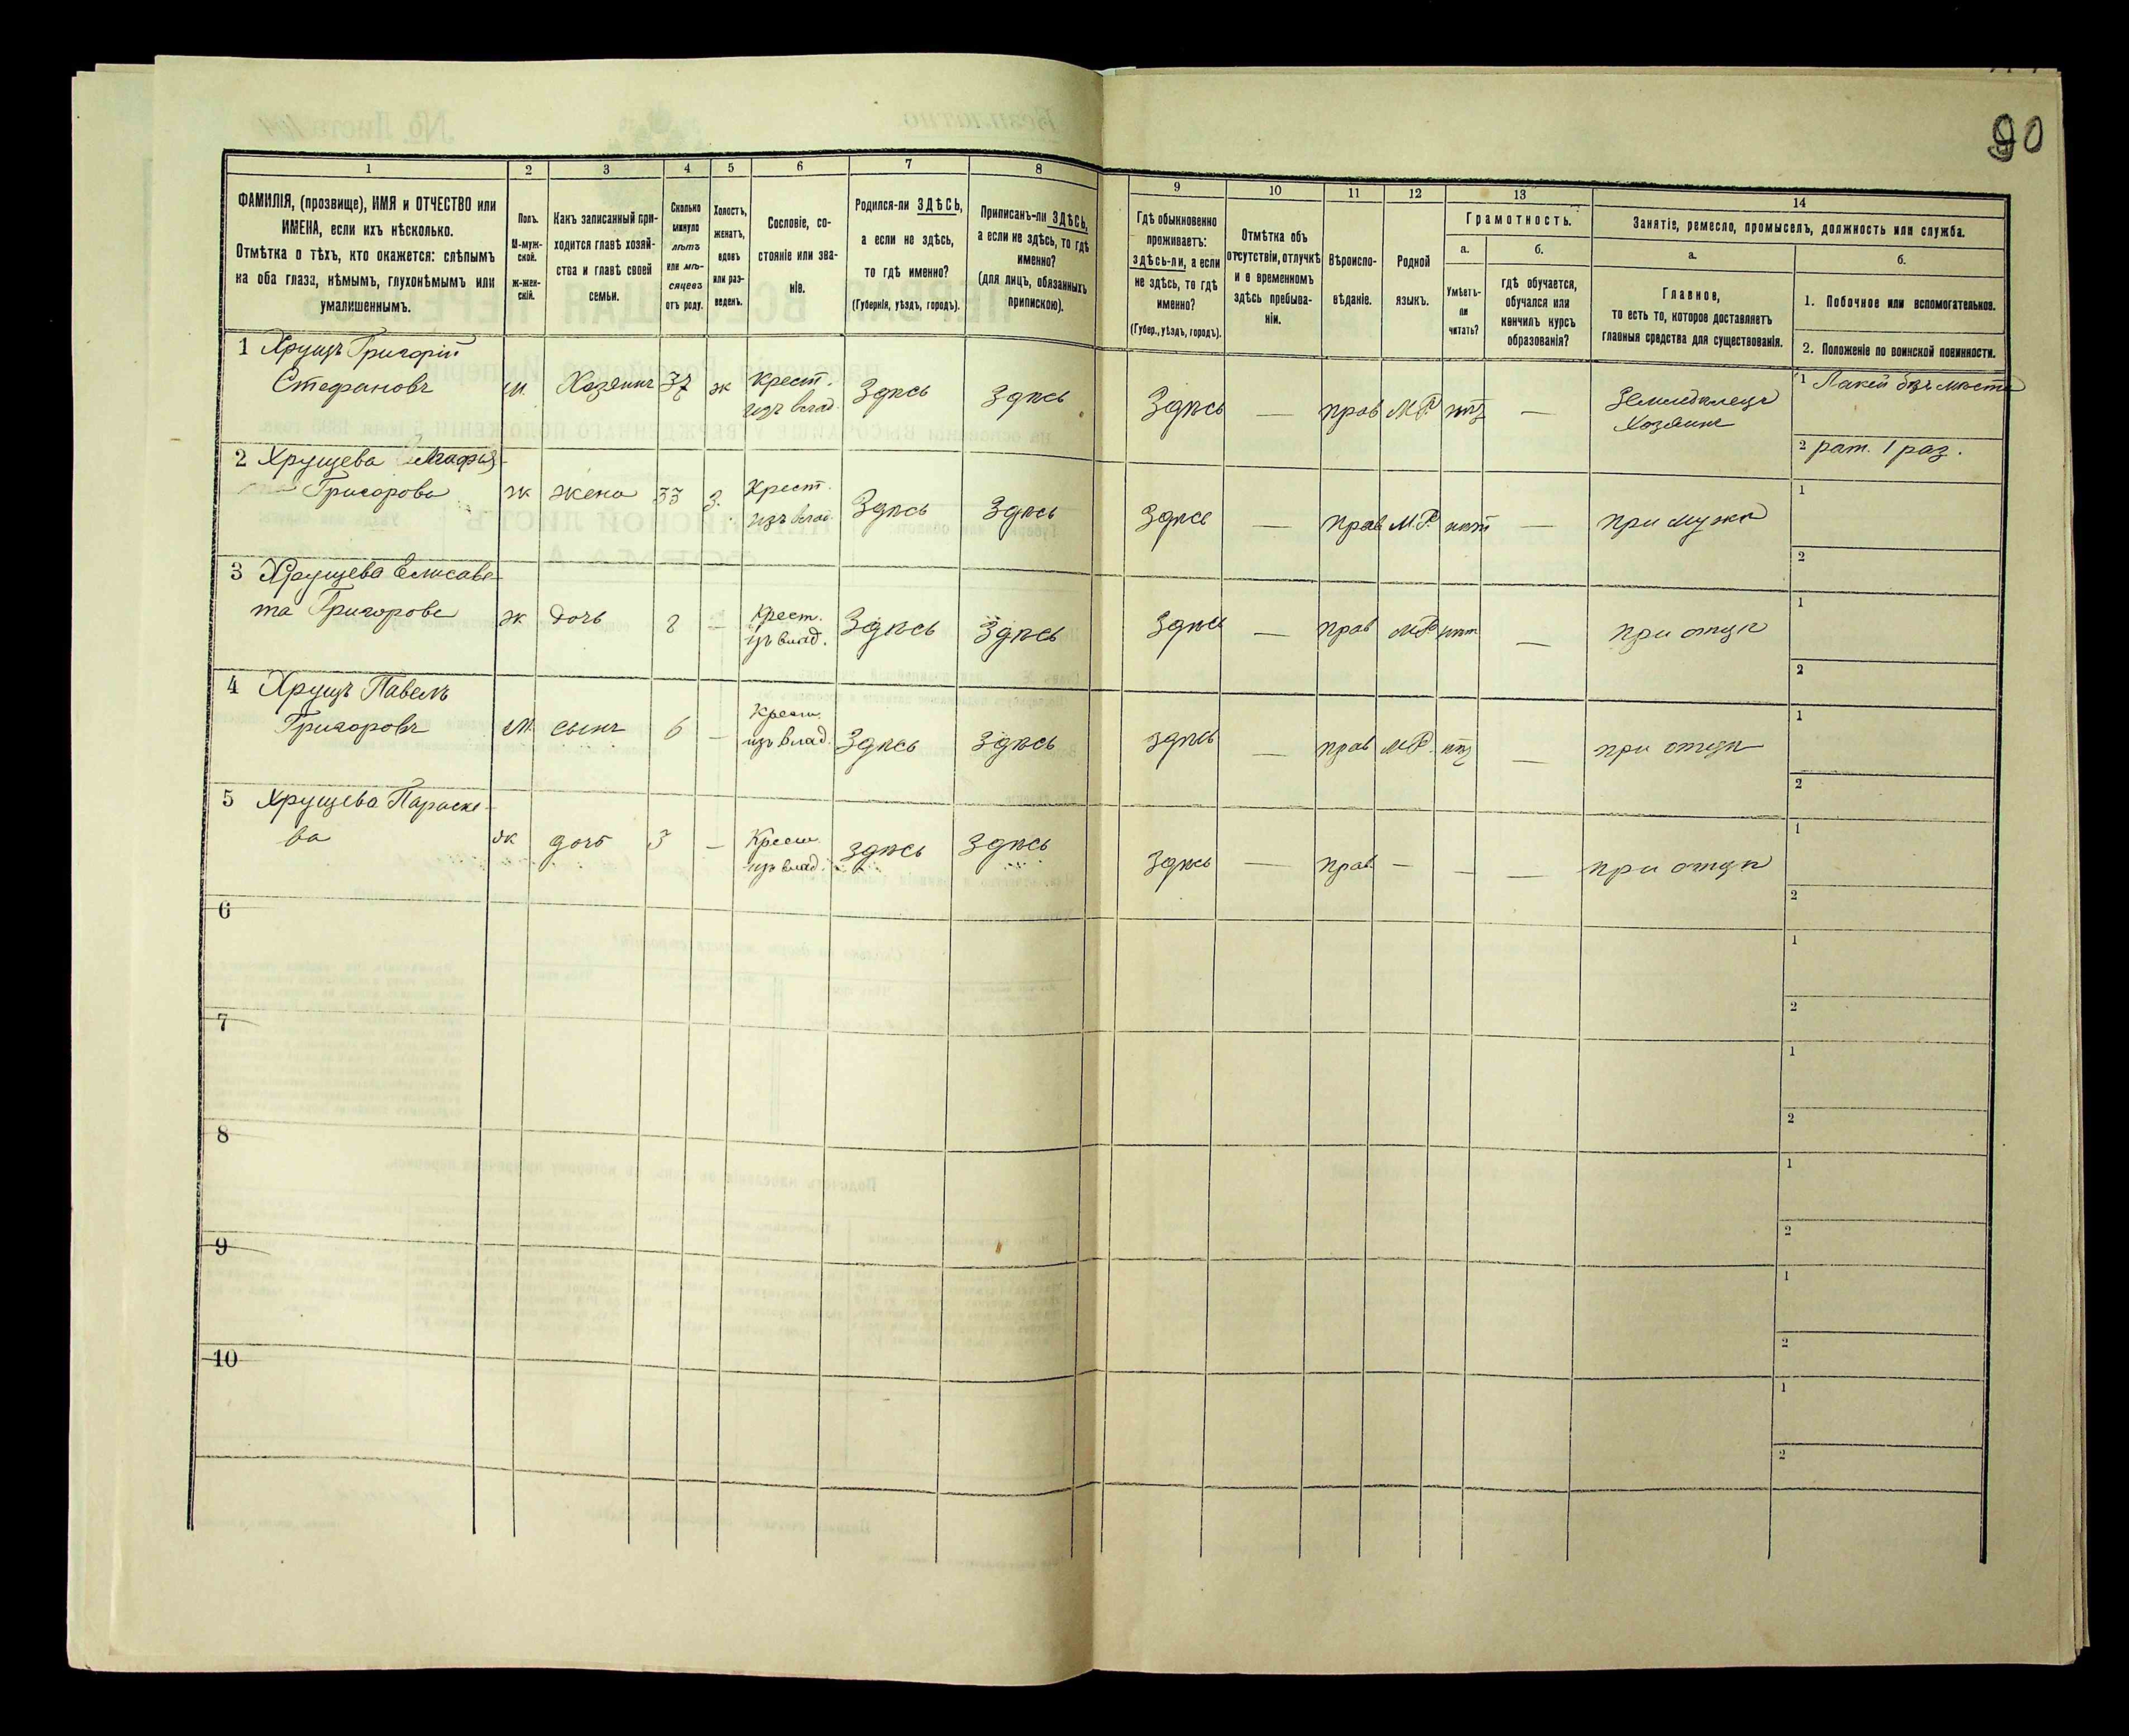 90
1 2 3 4 5 6 7 8 9 10 11 12 13 14
ФАМИЛІЯ, (прозвище), ИМЯ и ОТЧЕСТВО или
ИМЕНА, если ихъ нѣсколько.
Отмѣтка о тѣхъ, кто окажется: слѣпымъ
на оба глаза, нѣмымъ, глухонѣмымъ или
умалишеннымъ.
Полъ.
М-муж-
ской.
ж-жен-
скій.
Какъ записанный при-
ходится главѣ хозяй-
ства и главѣ своей
семьи.
Сколько
минуло
лѣтъ
или мѣ-
сяцевъ
отъ роду.
Холостъ,
женатъ,
вдовъ
или раз-
веденъ.
Сословіе, со-
стояніе или зва-
ніе.
Родился-ли ЗДѢСЬ,
а если не здѣсь,
то гдѣ именно?
(Губернія, уѣздъ, городъ).
Приписанъ-ли ЗДѢСЬ,
а если не здѣсь, то гдѣ
именно?
(для лицъ, обязанныхъ
припискою).
Гдѣ обыкновенно
проживаетъ:
здѣсь-ли, а если
не здѣсь, то гдѣ
именно?
(Губер., уѣздъ, городъ).
Отмѣтка объ
отсутствіи, отлучкѣ
и о временномъ
здѣсь пребыва-
ніи.
Вѣроиспо-
вѣданіе.
Родной
языкъ.
Грамотность.
а.
Умѣетъ-
ли
читать?
б.
гдѣ обучается,
обучался или
кончилъ курсъ
образованія?
Занятіе, ремесло, промыселъ, должность или служба.
а.
Главное,
то есть то, которое доставляетъ
главныя средства для существованія.
б.
1. Побочное или вспомогательное.
2. Положеніе по воинской повинности.
1 Хрущъ Григорій
Стефановъ м. Хозяинъ 37 ж Крест. изъ влад. Здѣсь Здѣсь Здѣсь — прав М.Р. нѣт — Земледѣлецъ Хозяинъ
1 Лакей безъ мѣста
2 рат. 1 раз.
2 Хрущева Агафія
Григорова ж жена 33 з. Крест. изъ влад. Здѣсь Здѣсь Здѣсь — прав М.Р. нѣт — при мужѣ
1
2
3 Хрущева Елисаве-
та Григорова ж дочь 8 — Крест. изъ влад. Здѣсь Здѣсь Здѣсь — прав М.Р. нѣт — при отцѣ
1
2
4 Хрущъ Павелъ
Григоровъ М. сынъ 6 — Крест. изъ влад. Здѣсь Здѣсь Здѣсь — прав М.Р. нѣт — при отцѣ
1
2
5 Хрущева Параске-
ва ж дочь 3 — Крест. изъ влад. Здѣсь Здѣсь Здѣсь — прав. — — — при отцѣ
1
2
6
1
2
7
1
2
8
1
2
9
1
2
10
1
2